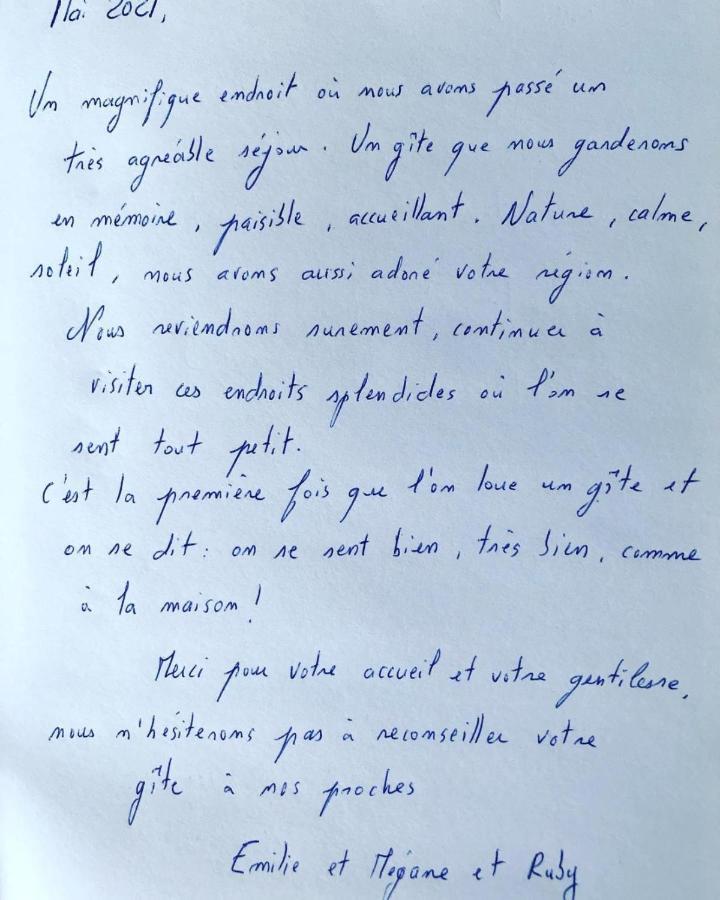 Mai 2021,
Un magnifique endroit où nous avons passé un
très agréable séjour. Un gîte que nous garderons
en mémoire, paisible, accueillant. Nature, calme,
soleil, nous avons aussi adoré votre région.
Nous reviendrons surement, continuer à
visiter ces endroits splendides où l'on se
sent tout petit.
C'est la première fois que l'on loue un gîte et
on se dit : on se sent bien, très bien, comme
à la maison !
Merci pour votre accueil et votre gentilesse,
nous n'hésiterons pas à reconseiller votre
gîte à nos proches
Emilie et Mégane et Ruby